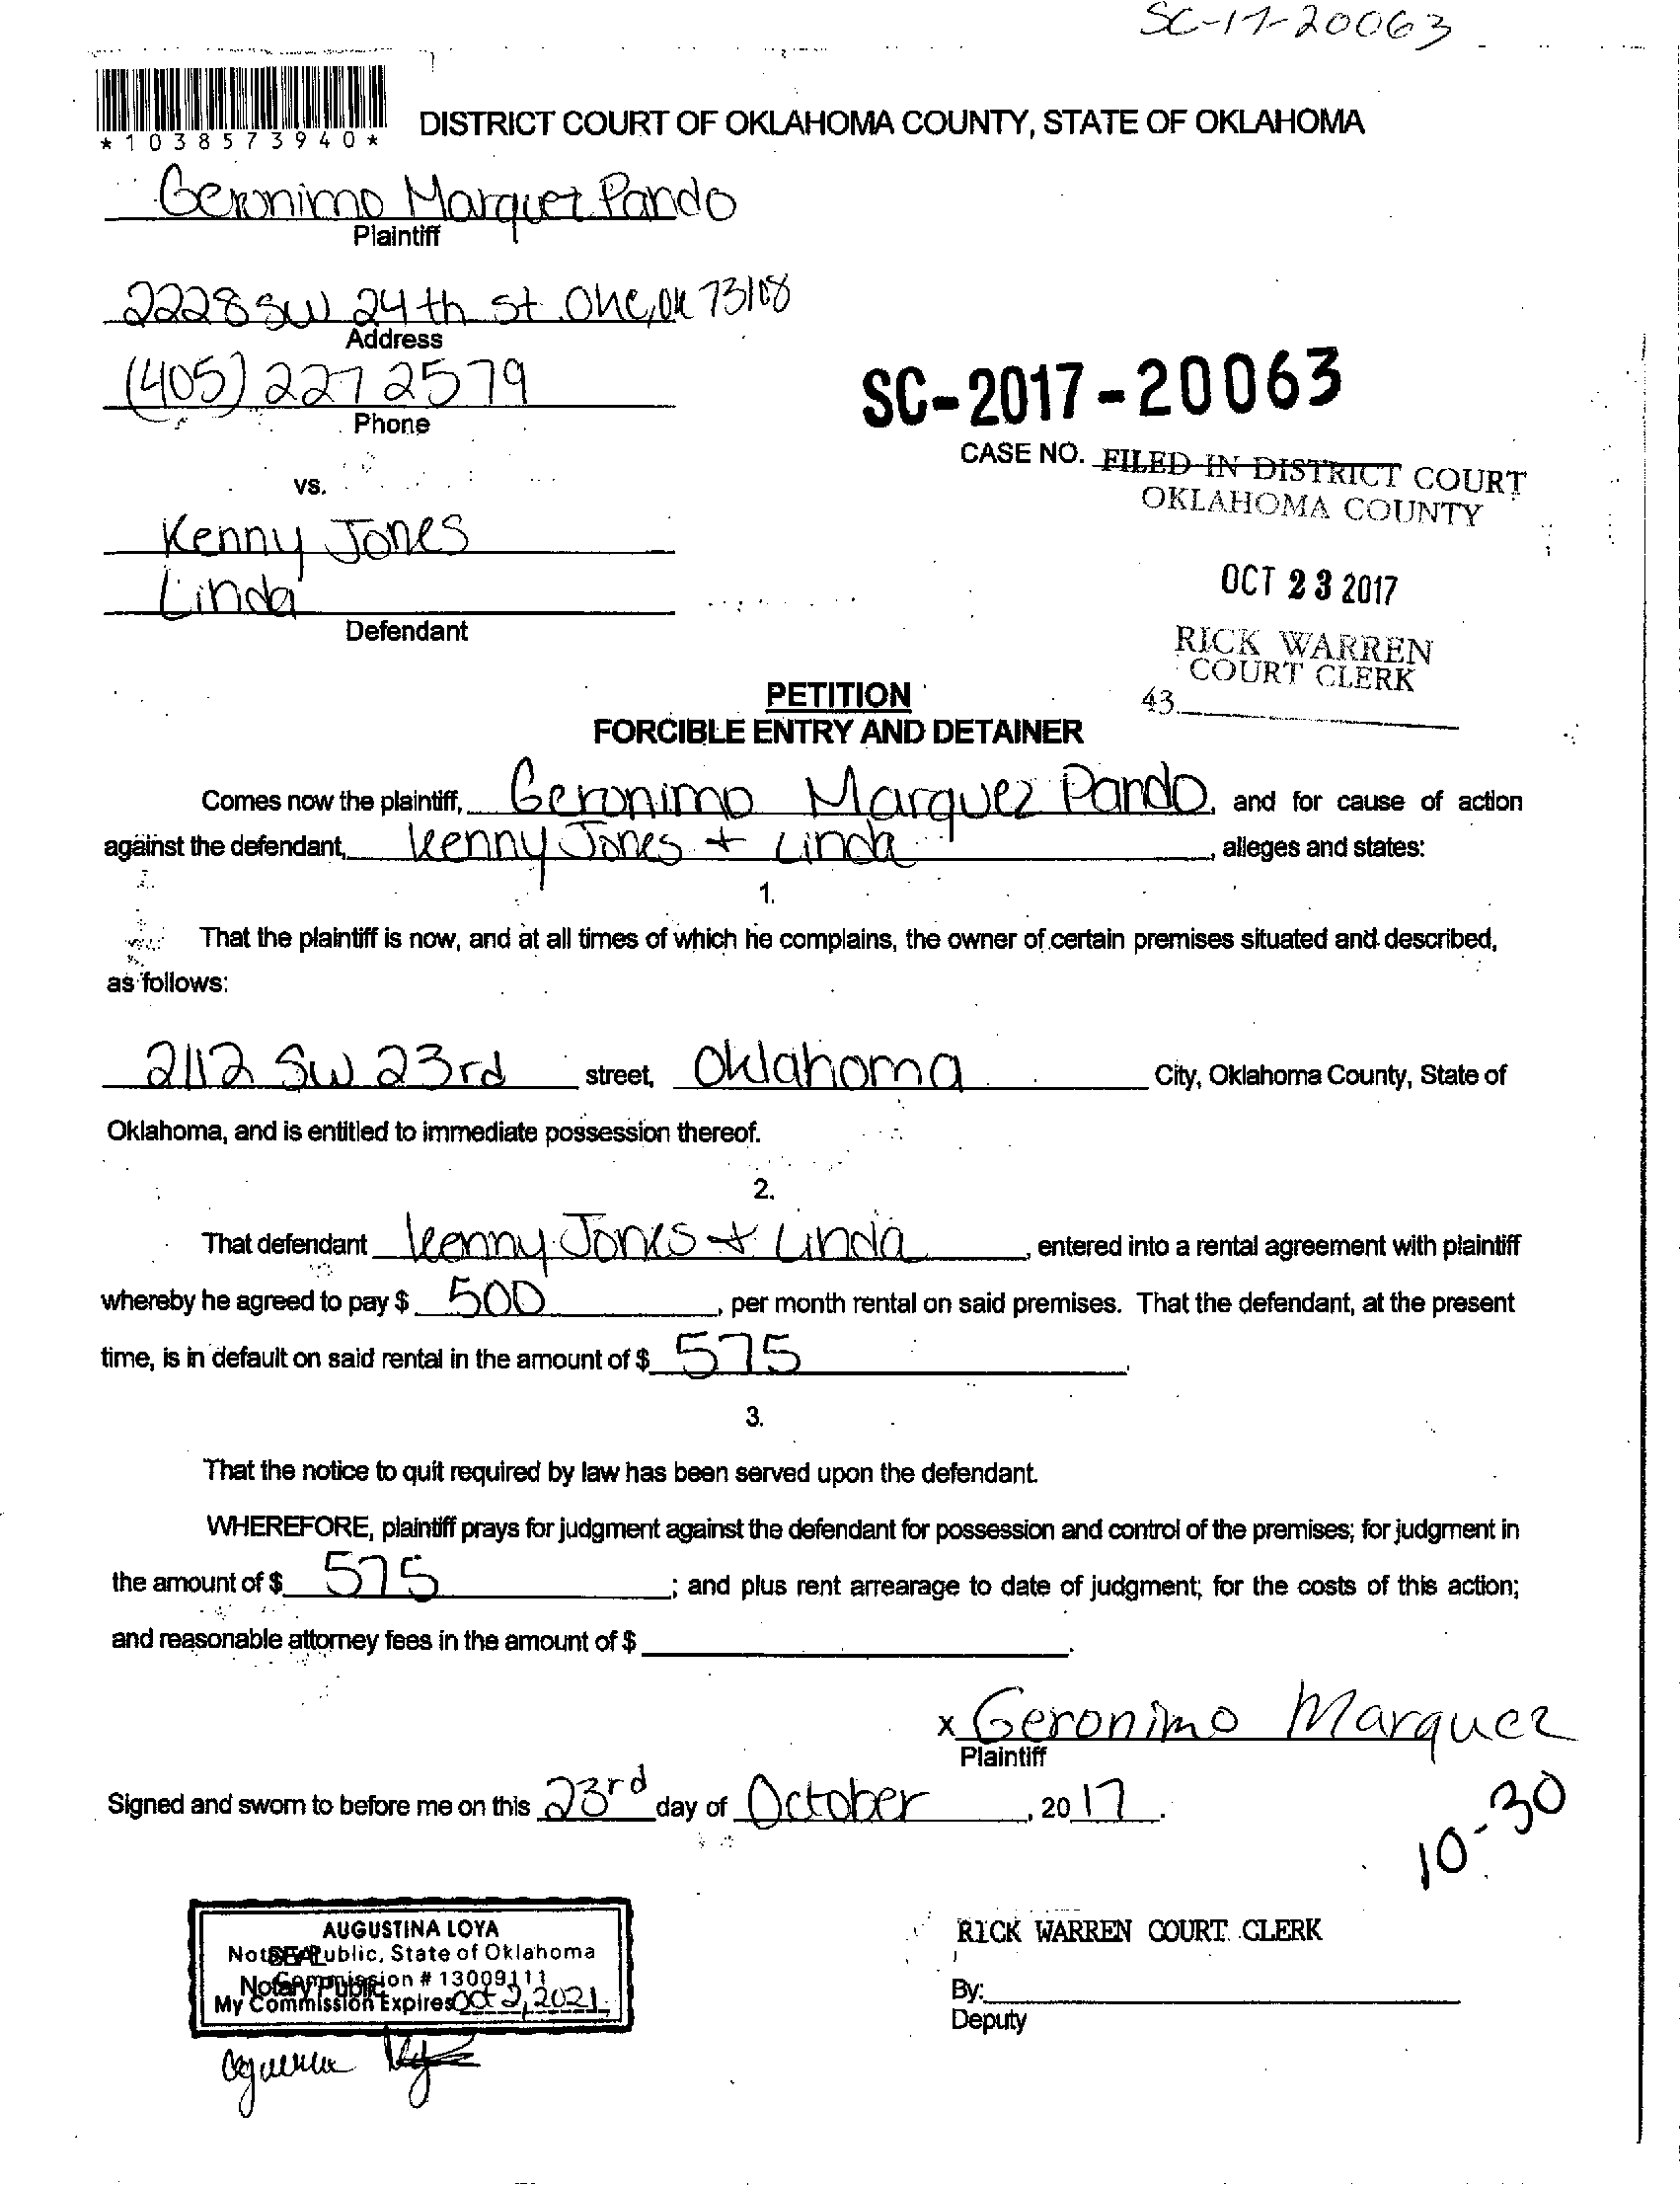 SC-17-20063
*1038573940*
DISTRICT COURT OF OKLAHOMA COUNTY, STATE OF OKLAHOMA
Geronimo Marquez Pando
Plaintiff
2228 SW 24th St. OKC, OK 73108
Address
(405) 227 2579
Phone
SC-2017-20063
CASE NO. FILED IN DISTRICT COURT
OKLAHOMA COUNTY
vs.
Kenny Jones
Linda
Defendant
OCT 23 2017
RICK WARREN
COURT CLERK
43
PETITION
FORCIBLE ENTRY AND DETAINER
Comes now the plaintiff, Geronimo Marquez Pando, and for cause of action
against the defendant, Kenny Jones + Linda, alleges and states:
1.
That the plaintiff is now, and at all times of which he complains, the owner of certain premises situated and described,
as follows:
2112 SW 23rd street, Oklahoma City, Oklahoma County, State of
Oklahoma, and is entitled to immediate possession thereof.
2.
That defendant Kenny Jones + Linda, entered into a rental agreement with plaintiff
whereby he agreed to pay $ 500, per month rental on said premises. That the defendant, at the present
time, is in default on said rental in the amount of $ 575.
3.
That the notice to quit required by law has been served upon the defendant.
WHEREFORE, plaintiff prays for judgment against the defendant for possession and control of the premises; for judgment in
the amount of $ 575; and plus rent arrearage to date of judgment; for the costs of this action;
and reasonable attorney fees in the amount of $ .
x Geronimo Marquez
Plaintiff
Signed and sworn to before me on this 23rd day of October, 2017.
10-30
AUGUSTINA LOYA
Notary Public, State of Oklahoma
SEAL
Commission # 13009111
Notary Public
My Commission Expires Oct 2, 2021
RICK WARREN COURT CLERK
By:
Deputy